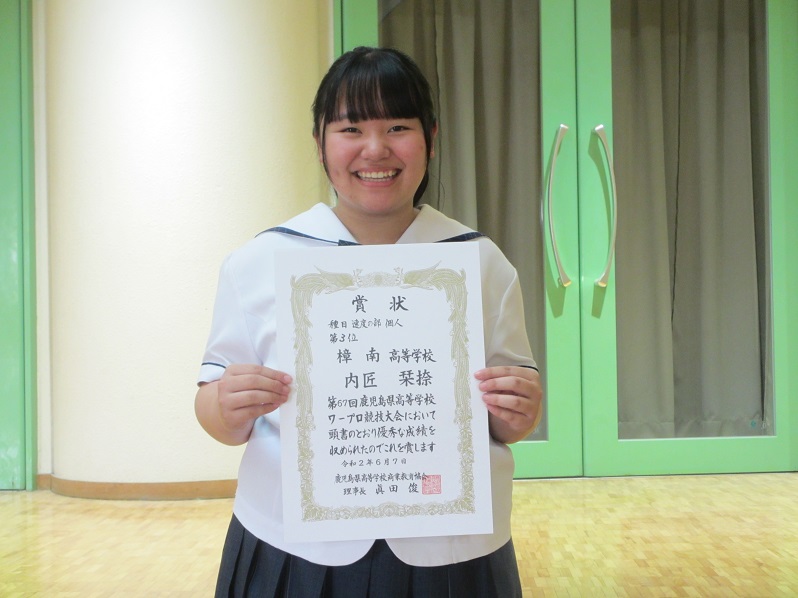 賞状
種目 速度の部 個人
第3位
樟南 高等学校
内匠 栞捺
第67回鹿児島県高等学校
ワープロ競技大会において
頭書のとおり優秀な成績を
収められたのでこれを賞します
令和2年6月7日
鹿児島県高等学校商業教育協会
理事長 眞田 俊